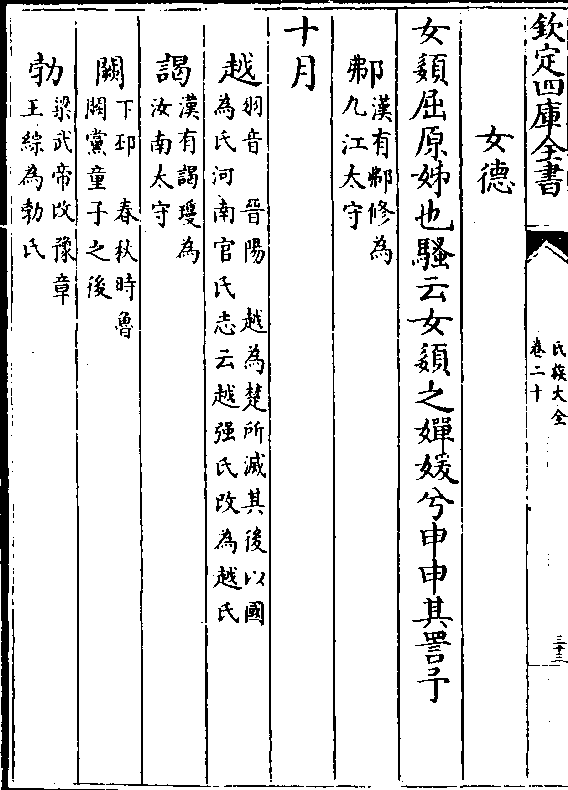 欽定四庫全書
氏族大全
卷二十
三十三
女德
女𩔰屈原姊也騷云女𩔰之嬋媛兮申申其詈予
鄸漢有鄸修為
九江太守
十月
越羽音 晉陽 越為楚所滅其後以國
為氏河南官氏志云越强氏改為越氏
謁漢有謁瓊為
汝南太守
闕下邳 春秋時魯
闕黨童子之後
勃梁武帝改豫章
王綜為勃氏